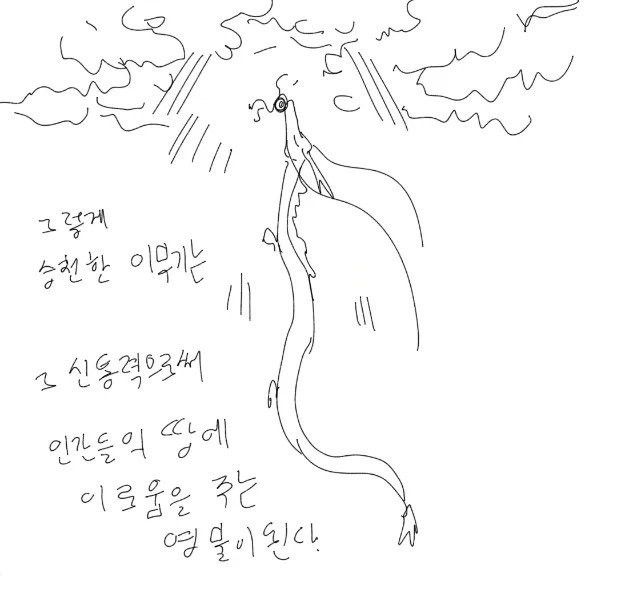 그렇게
승천한 이무기는
그 신통력으로써
인간들의 땅에
이로움을 주는
영물이된다.